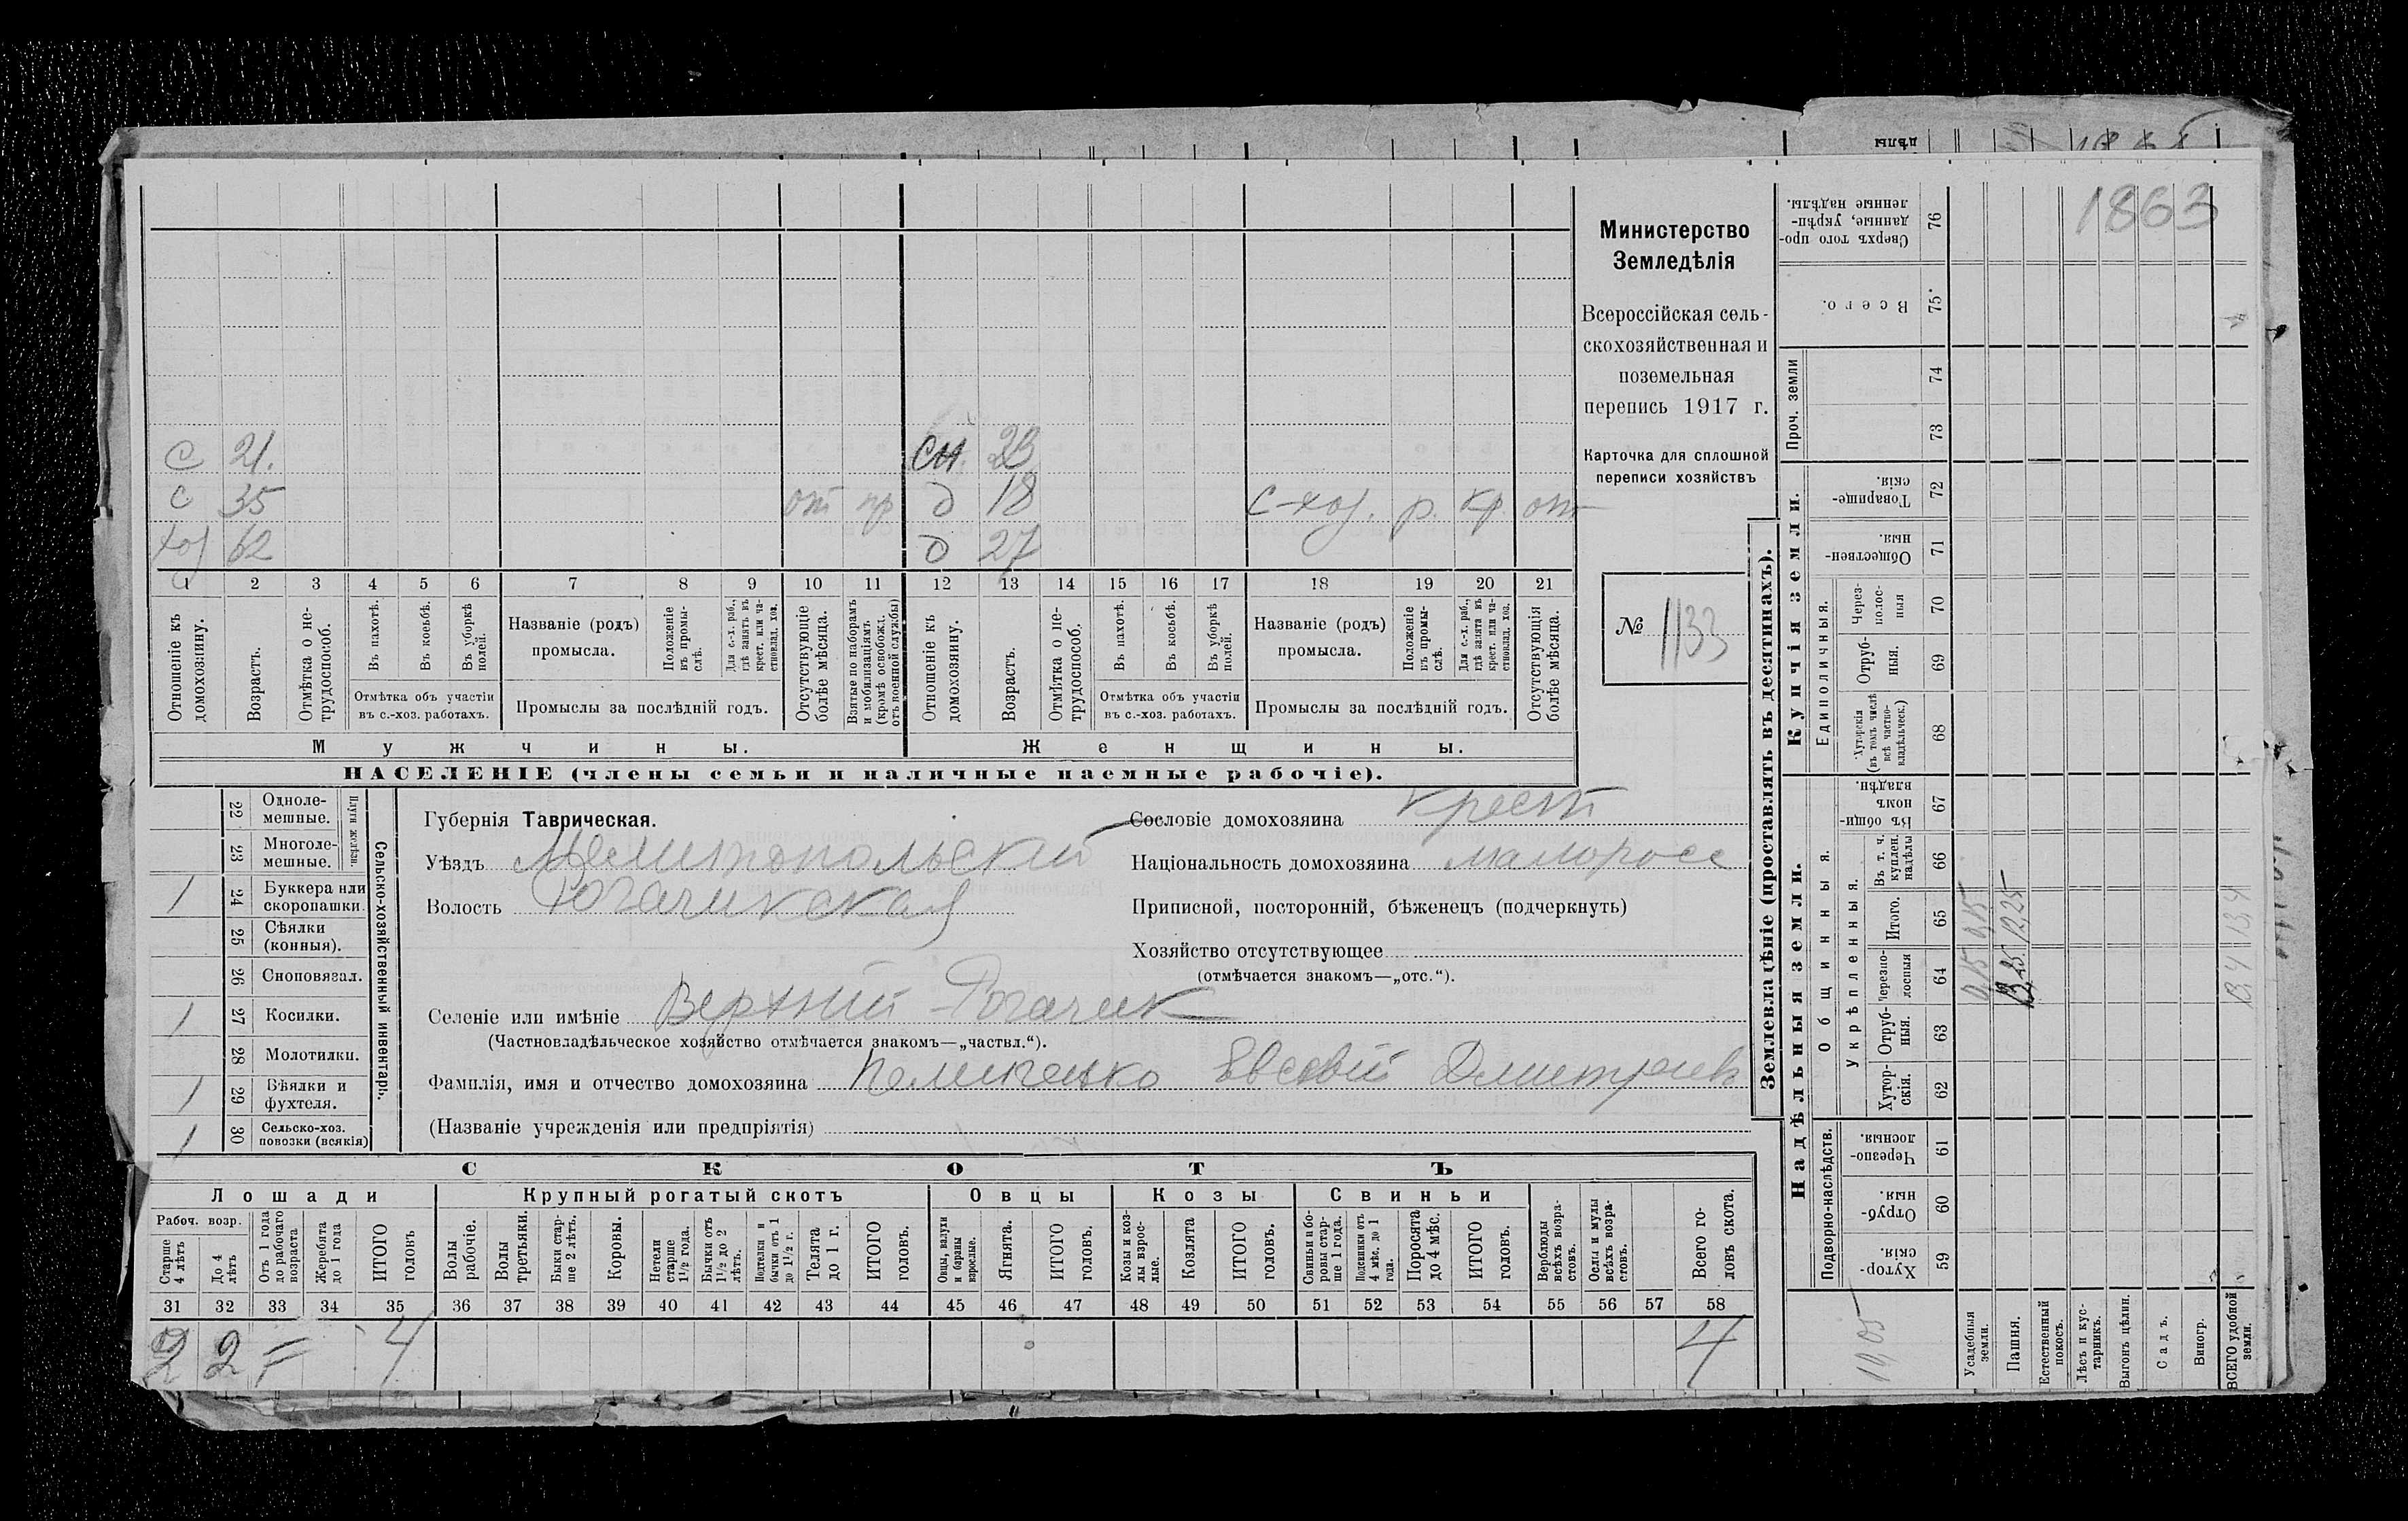 1863
Министерство
Земледѣлія
Всероссійская сель-
скохозяйственная и
поземельная
перепись 1917 г.
Карточка для сплошной
переписи хозяйствъ
№ 1133
С 21. сн. 23
с 35 отп пр д 18 с-хоз. р. кр. отп
хоз 62 д 27
1 2 3 4 5 6 7 8 9 10 11 12 13 14 15 16 17 18 19 20 21
Отношеніе къ домохозяину.
Возрастъ.
Отмѣтка о не-трудоспособ.
Въ пахотѣ.
Въ косьбѣ.
Въ уборкѣ полей.
Отмѣтка объ участіи
въ с.-хоз. работахъ.
Названіе (родъ)
промысла.
Положеніе въ промы-слѣ.
Для с.-х. раб., гдѣ занятъ въ крест. или ча-стновлад. хоз.
Промыслы за послѣдній годъ.
Отсутствующіе болѣе мѣсяца.
Взятые по наборамъ и мобилизаціямъ (кромѣ освобожд. отъ военной службы)
Отношеніе къ домохозяину.
Возрастъ.
Отмѣтка о не-трудоспособ.
Въ пахотѣ.
Въ косьбѣ.
Въ уборкѣ полей.
Отмѣтка объ участіи
въ с.-хоз. работахъ.
Названіе (родъ)
промысла.
Положеніе въ промы-слѣ.
Для с.-х. раб., гдѣ занята въ крест. или ча-стновлад. хоз.
Промыслы за послѣдній годъ.
Отсутствующія болѣе мѣсяца.
Мужчины. Женщины.
НАСЕЛЕНІЕ (члены семьи и наличные наемные рабочіе).
Сельско-хозяйственный инвентарь.
22 Одноле-мешные.
23 Многоле-мешные.
1 24 Буккера или скоропашки.
25 Сѣялки (конныя).
26 Сноповязал.
1 27 Косилки.
28 Молотилки.
1 29 Вѣялки и фухтеля.
1 30 Сельско-хоз. повозки (всякія)
Губернія Таврическая.
Уѣздъ Мелитопольскій
Волость Рогачикская
Сословіе домохозяина крест
Національность домохозяина малоросс
Приписной, посторонній, бѣженецъ (подчеркнуть)
Хозяйство отсутствующее
(отмѣчается знакомъ—„отс.“).
Селеніе или имѣніе Верхній Рогачик
(Частновладѣльческое хозяйство отмѣчается знакомъ—„частвл.“).
Фамилія, имя и отчество домохозяина Евсевій Дмитріевъ
(Названіе учрежденія или предпріятія)
СКОТЪ
Лошади Крупный рогатый скотъ Овцы Козы Свиньи
Рабоч. возр.
Старше 4 лѣтъ
До 4 лѣтъ
Отъ 1 года до рабочаго возраста
Жеребята до 1 года
ИТОГО головъ
Волы рабочіе.
Волы третьяки.
Быки стар-ше 2 лѣтъ.
Коровы.
Нетели старше 1½ года.
Бычки отъ 1½ до 2 лѣтъ.
Подтелки и бычки отъ 1 до 1½ г.
Телята до 1 г.
ИТОГО головъ.
Овцы, валухи и бараны взрослые.
Ягнята.
ИТОГО головъ.
Козы и коз-лы взрос-лые.
Козлята
ИТОГО головъ.
Свиньи и бо-ровы стар-ше 1 года.
Подсвинки отъ 4 мѣс. до 1 года.
Поросята до 4 мѣс.
ИТОГО головъ.
Верблюды всѣхъ возра-стовъ.
Ослы и мулы всѣхъ возра-стовъ.
Всего го-ловъ скота.
31 32 33 34 35 36 37 38 39 40 41 42 43 44 45 46 47 48 49 50 51 52 53 54 55 56 57 58
2 2 4 4
Землевладѣніе (проставлять въ десятинахъ).
Надѣльныя земли.
Купчія земли.
Проч. земли
Подворно-наслѣдств.
Общинныя.
Укрѣпленныя.
Единоличныя.
Хутор-скія. 59
Отруб-ныя. 60
Черезпо-лосныя. 61
Хутор-скія. 62
Отруб-ныя. 63
Черезпо-лосныя 64
Итого. 65
Въ т. ч. куплен. надѣлы 66
Въ общи-номъ владѣн. 67
Хуторскія (въ томъ числѣ всѣ частно-владѣльческ.) 68
Отруб-ныя. 69
Через-полос-ныя 70
Обществен-ныя. 71
Товарище-скія. 72
73
74
Всего. 75
Сверхъ того про-данные, укрѣп-ленные надѣлы. 76
Усадебныя земли. 0,15 0,15
Пашня. 12,25
Естественный покосъ.
Лѣсъ и кус-тарникъ.
Выгонъ цѣлин.
Садъ.
Виногр.
ВСЕГО удобной земли. 13,4 13,4